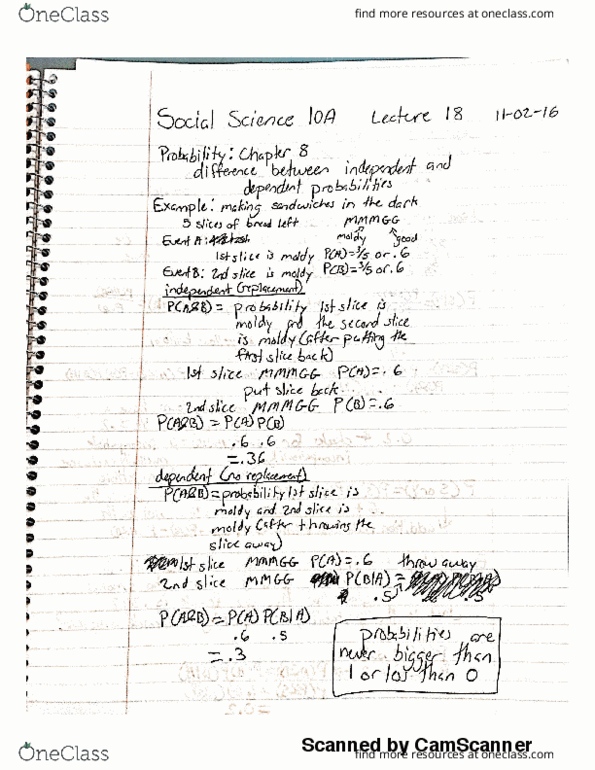 OneClass
find more resources at oneclass.com
Social Science 10A Lecture 18 11-02-16
Probability: Chapter 8
difference between independent and
dependent probabilities
Example: making sandwiches in the dark
5 slices of bread left MMMGG
Event A: moldy good
1st slice is moldy P(A)=3/5 or .6
Event B: 2nd slice is moldy P(B)=3/5 or .6
independent (replacement)
P(A&B) = probability 1st slice is
moldy and the second slice
is moldy (after putting the
first slice back)
1st slice MMMGG P(A)=.6
put slice back
2nd slice MMMGG P(B)=.6
P(A&B) = P(A) P(B)
.6 .6
=.36
dependent (no replacement)
P(A&B)=probability 1st slice is
moldy and 2nd slice is
moldy (after throwing the
slice away)
1st slice MMMGG P(A)=.6 throw away
2nd slice MMGG P(B|A) =
.5
P(A&B)=P(A) P(B|A)
.6 .5
=.3
probabilities are
never bigger than
1 or less than 0
Scanned by CamScanner
OneClass
find more resources at oneclass.com